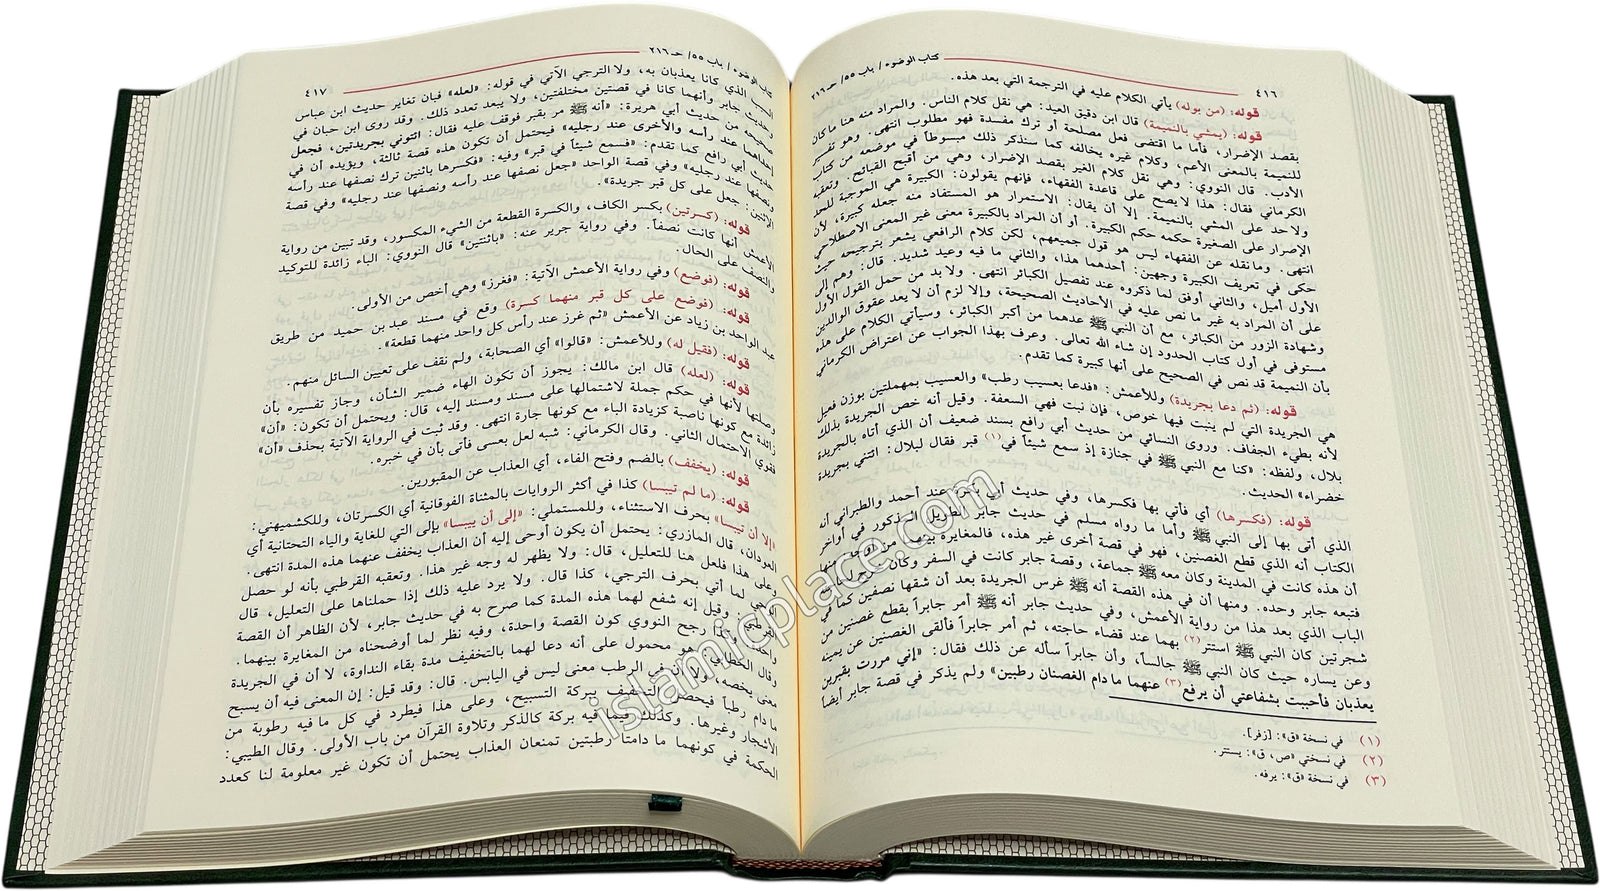 ٤١٦ كتاب الوضوء / باب ٥٥/ حـ ٢١٦
يأتي الكلام عليه في الترجمة التي بعد هذه.
قوله: (من بوله)
قوله: (يمشي بالنميمة) قال ابن دقيق العيد: هي نقل كلام الناس. والمراد منه هنا ما كان
بقصد الإضرار، فأما ما اقتضى فعل مصلحة أو ترك مفسدة فهو مطلوب انتهى. وهو تفسير
للنميمة بالمعنى الأعم، وكلام غيره يخالفه كما سنذكر ذلك مبسوطاً في موضعه من كتاب
الأدب. قال النووي: وهي نقل كلام الغير بقصد الإضرار، وهي من أقبح القبائح. وتعقبه
الكرماني فقال: هذا لا يصح على قاعدة الفقهاء، فإنهم يقولون: الكبيرة هي الموجبة للحد
ولا حد على المشي بالنميمة. إلا أن يقال: الاستمرار هو المستفاد منه جعله كبيرة، لأن
الإصرار على الصغيرة حكمه حكم الكبيرة. أو أن المراد بالكبيرة معنى غير المعنى الاصطلاحي
انتهى. وما نقله عن الفقهاء ليس هو قول جميعهم، لكن كلام الرافعي يشعر بترجيحه حيث
حكى في تعريف الكبيرة وجهين: أحدهما هذا، والثاني ما فيه وعيد شديد. قال: وهم إلى
الأول أميل، والثاني أوفق لما ذكروه عند تفصيل الكبائر انتهى. ولا بد من حمل القول الأول
على أن المراد به غير ما نص عليه في الأحاديث الصحيحة، وإلا لزم أن لا يعد عقوق الوالدين
وشهادة الزور من الكبائر، مع أن النبي ﷺ عدهما من أكبر الكبائر، وسيأتي الكلام على هذه
مستوفى في أول كتاب الحدود إن شاء الله تعالى. وعرف بهذا الجواب عن اعتراض الكرماني
بأن النميمة قد نص في الصحيح على أنها كبيرة كما تقدم.
قوله: (ثم دعا بجريدة) وللأعمش: «فدعا بعسيب رطب» والعسيب بمهملتين بوزن فعيل
هي الجريدة التي لم ينبت فيها خوص، فإن نبت فهي السعفة. وقيل أنه خص الجريدة بذلك
لأنه بطيء الجفاف. وروى النسائي من حديث أبي رافع بسند ضعيف أن الذي أتاه بالجريدة
بلال، ولفظه: «كنا مع النبي ﷺ في جنازة إذ سمع شيئاً في(١) قبر فقال لبلال: ائتني بجريدة
خضراء» الحديث.
قوله: (فكسرها) أي فأتي بها فكسرها، وفي حديث أبي بكرة عند أحمد والطبراني أنه
الذي أتى بها إلى النبي ﷺ وأما ما رواه مسلم في حديث جابر الطويل المذكور في أواخر
الكتاب أنه الذي قطع الغصنين، فهو في قصة أخرى غير هذه، فالمغايرة بينهما من أوجه: منها
أن هذه كانت في المدينة وكان معه ﷺ جماعة، وقصة جابر كانت في السفر وكان خرج
فتبعه جابر وحده. ومنها أن في هذه القصة أنه ﷺ غرس الجريدة بعد أن شقها نصفين كما في
الباب الذي بعد هذا من رواية الأعمش، وفي حديث جابر أنه ﷺ أمر جابراً بقطع غصنين من
شجرتين كان النبي ﷺ استتر(٢) بهما عند قضاء حاجته، ثم أمر جابراً فألقى الغصنين عن يمينه
وعن يساره حيث كان النبي ﷺ جالساً، وأن جابراً سأله عن ذلك فقال: «إني مررت بقبرين
يعذبان فأحببت بشفاعتي أن يرفع(٣) عنهما ما دام الغصنان رطبين» ولم يذكر في قصة جابر أيضاً
(١) في نسخة «ق»: [زفر].
(٢) في نسختي «ص، ق»: يستتر.
(٣) في نسخة «ق»: يرفه.
كتاب الوضوء / باب ٥٥/ حـ ٢١٦ ٤١٧
السبب الذي كانا يعذبان به، ولا الترجي الآتي في قوله: «لعله» فبان تغاير حديث ابن عباس
وحديث جابر وأنهما كانا في قصتين مختلفتين، ولا يبعد تعدد ذلك. وقد روى ابن حبان في
صحيحه من حديث أبي هريرة: «أنه ﷺ مر بقبر فوقف عليه فقال: ائتوني بجريدتين، فجعل
إحداهما عند رأسه والأخرى عند رجليه» فيحتمل أن تكون هذه قصة ثالثة، ويؤيده أن في
حديث أبي رافع كما تقدم: «فسمع شيئاً في قبر» وفيه: «فكسرها باثنين ترك نصفها عند رأسه
ونصفها عند رجليه» وفي قصة الواحد «جعل نصفها عند رأسه ونصفها عند رجليه» وفي قصة
الاثنين: جعل على كل قبر جريدة».
قوله: (كسرتين) بكسر الكاف، والكسرة القطعة من الشيء المكسور، وقد تبين من رواية
الأعمش أنها كانت نصفاً. وفي رواية جرير عنه: «باثنتين» قال النووي: الباء زائدة للتوكيد
والنصف على الحال.
قوله: (فوضع) وفي رواية الأعمش الآتية: «فغرز» وهي أخص من الأولى.
قوله: (فوضع على كل قبر منهما كسرة) وقع في مسند عبد بن حميد من طريق
عبد الواحد بن زياد عن الأعمش «ثم غرز عند رأس كل واحد منهما قطعة».
قوله: (فقيل له) وللأعمش: «قالوا» أي الصحابة، ولم نقف على تعيين السائل منهم.
قوله: (لعله) قال ابن مالك: يجوز أن تكون الهاء ضمير الشأن، وجاز تفسيره بأن
وصلتها لأنها في حكم جملة لاشتمالها على مسند ومسند إليه، قال: ويحتمل أن تكون: «أن»
زائدة مع كونها ناصبة كزيادة الباء مع كونها جارة انتهى. وقد ثبت في الرواية الآتية بحذف «أن»
فقوي الاحتمال الثاني. وقال الكرماني: شبه لعل بعسى فأتى بأن في خبره.
قوله: (يخفف) بالضم وفتح الفاء، أي العذاب عن المقبورين.
قوله: (ما لم تيبسا) كذا في أكثر الروايات بالمثناة الفوقانية أي الكسرتان، وللكشميهني:
«إلا أن تيبسا» بحرف الاستثناء، وللمستملي: «إلى أن ييبسا» بإلى التي للغاية والياء التحتانية أي
العودان، قال المازري: يحتمل أن يكون أوحى إليه أن العذاب يخفف عنهما هذه المدة انتهى.
وعلى هذا فلعل هنا للتعليل، قال: ولا يظهر له وجه غير هذا. وتعقبه القرطبي بأنه لو حصل
الوحي لما أتي بحرف الترجي، كذا قال. ولا يرد عليه ذلك إذا حملناها على التعليل، قال
القرطبي: وقيل إنه شفع لهما هذه المدة كما صرح به في حديث جابر، لأن الظاهر أن القصة
واحدة. وكذا رجح النووي كون القصة واحدة، وفيه نظر لما أوضحناه من المغايرة بينهما.
وقال الخطابي: هو محمول على أنه دعا لهما بالتخفيف مدة بقاء النداوة، لا أن في الجريدة
معنى يخصه، ولا أن في الرطب معنى ليس في اليابس. قال: وقد قيل: إن المعنى فيه أن يسبح
ما دام رطباً فيحصل التخفيف ببركة التسبيح، وعلى هذا فيطرد في كل ما فيه رطوبة من
الأشجار وغيرها. وكذلك فيما فيه بركة كالذكر وتلاوة القرآن من باب الأولى. وقال الطيبي:
الحكمة في كونهما ما دامتا رطبتين تمنعان العذاب يحتمل أن تكون غير معلومة لنا كعدد
islamicplace.com